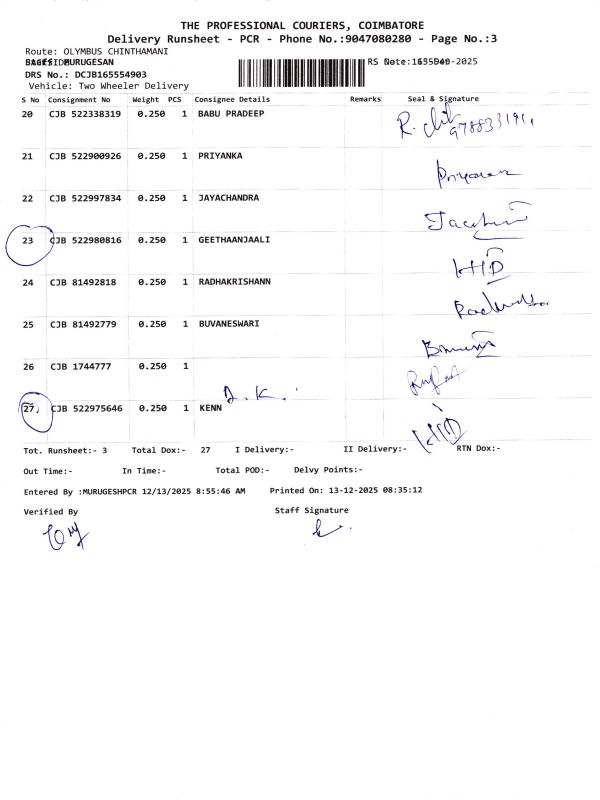 THE PROFESSIONAL COURIERS, COIMBATORE
Delivery Runsheet - PCR - Phone No.:9047080280 - Page No.:3
Route: OLYMBUS CHINTHAMANI
MURUGESAN RS
DRS No.: DCJB165554903
Vehicle: Two Wheeler Delivery
S No Consignment No Weight PCS Consignee Details Remarks Seal & Signature
20 CJB 522338319 0.250 1 BABU PRADEEP
21 CJB 522900926 0.250 1 PRIYANKA
22 CJB 522997834 0.250 1 JAYACHANDRA
23 CJB 522980816 0.250 1 GEETHAANJAALI
24 CJB 81492818 0.250 1 RADHAKRISHANN
25 CJB 81492779 0.250 1 BUVANESWARI
26 CJB 1744777 0.250 1
27 CJB 522975646 0.250 1 KENN
Tot. Runsheet:- 3 Total Dox:- 27 I Delivery:- II Delivery:- RTN Dox:-
Out Time:- In Time:- Total POD:- Delvy Points:-
Entered By :MURUGESHPCR 12/13/2025 8:55:46 AM Printed On: 13-12-2025 08:35:12
Verified By Staff Signature